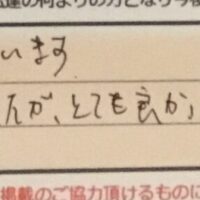 運の何よりの力となり今後
います
たが、とても良か
掲載のご協力頂けるものに